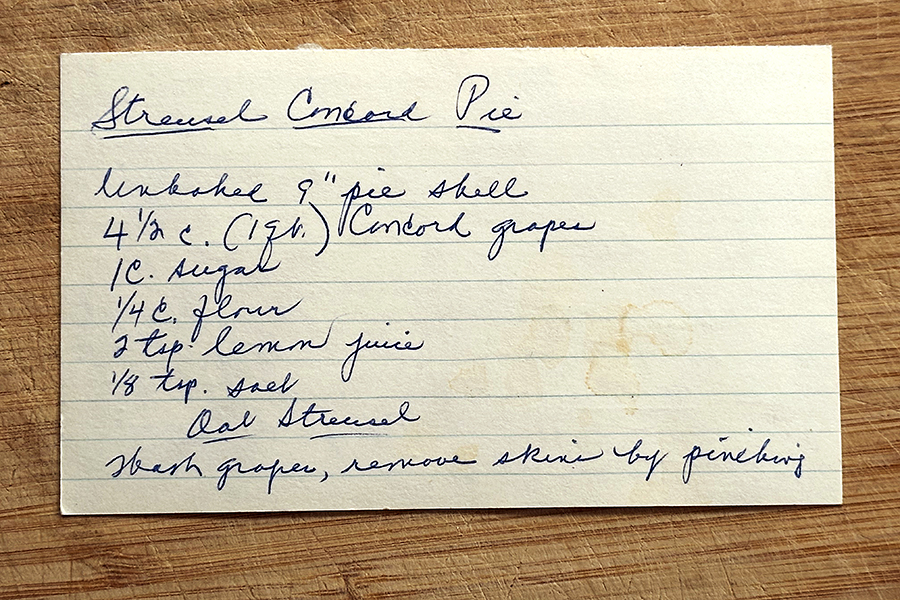 Streusel Concord Pie
Unbaked 9" pie shell
4 1/2 c. (1 qt.) Concord grapes
1 C. sugar
1/4 C. flour
2 tsp. lemon juice
1/8 tsp. salt
Oat Streusel
Wash grapes, remove skins by pinching